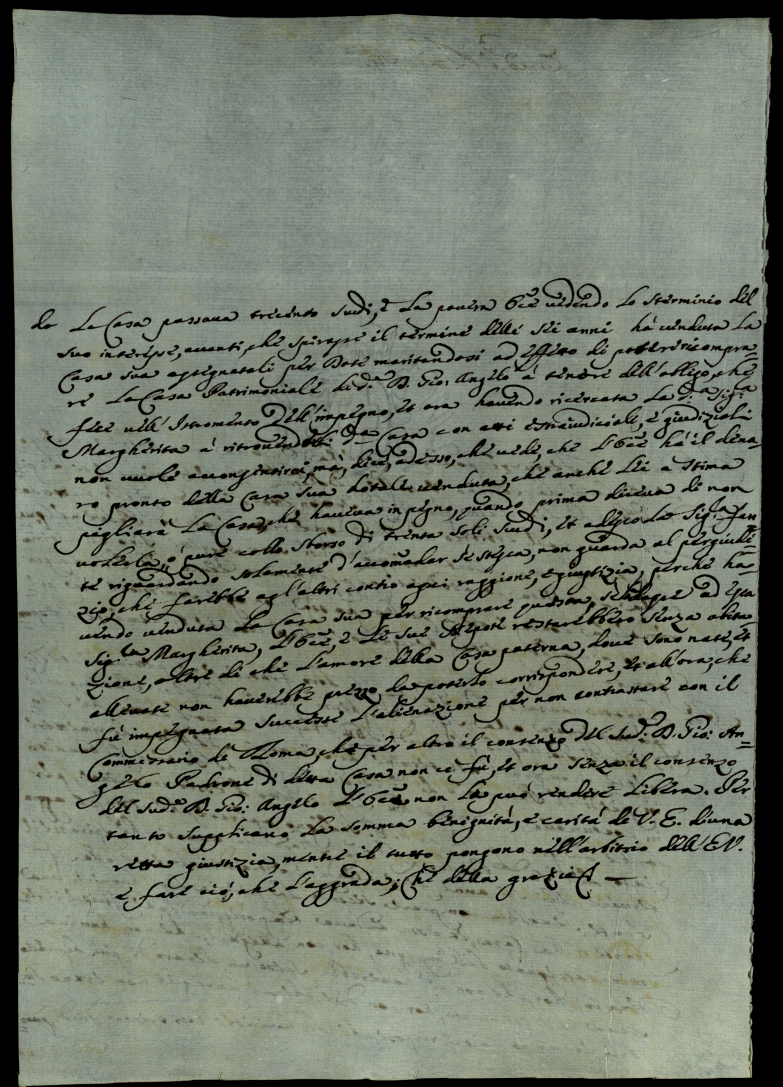 do La Casa passava trecento scudi, e la povera Or̃e vedendo lo sterminio del
suo interesse, avanti, che spirasse il termine delli sei anni hà venduta la
Casa sua assegnatali per Dote maritandosi ad effetto di potere ricompra=
re la Casa Patrimoniale di d.º D. Gio: Angelo à tenore dell'obligo, che
fece nell'Istromento dell'impegno, et ora havendo ricercata la d.ª Sig.ra
Margherita à ritrovendersi d.ª Casa con atti estragiudiciali, e giudiziali
non vuole acconsentirci, mà, dice, adesso, che vede, che l'Or̃e hà il dena=
ro pronto della Casa sua dotale venduta, che anche lei a stima
pigliarà la Casa, che haveva in pegno, quando prima diceva di non
volerla, ò pure collo sborso di trenta soli scudi, et adesso la Sig.ra
te riguardando solamente d'accomodar se stessa, non guarda al pregiudi=
zio, che farebbe agl'altri contro ogni raggione, e giustizia, perche ha=
vendo venduta la Casa sua per ricomprare questa, ad essa
Sig.ra Margherita, l'Or̃e, e le sue Nepoti restarebbero senza abita=
zione, oltre di che l'amore della Casa paterna, dove sono nate, et
allevate non haverebbe prezzo da poterlo corrispondere, et all'ora, che
fù impegnata successe l'alienazione per non contrastare con il
Commissario di Roma, che per altro il consenzo del sud.º D. Gio: An=
gelo Padrone di detta Casa non ce fù, et ora senza il consenzo
del sud.º D. Gio: Angelo l'Or̃e non la può rendere libera. Per
tanto supplicano la somma benignità, e carità di V. E. di una
retta giustizia, mentre il tutto pongono nell'arbitrio dell'E.V.
e fare ciò, che l'aggrada; Che della grazia